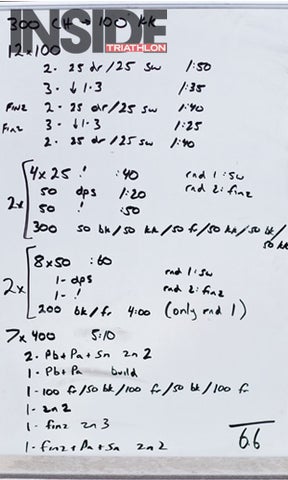 300 CH → 100 KK
INSIDE
TRIATHLON
12x100
2- 25 dr/25 sw 1:50
3- ↓1-3 1:35
FINZ 2- 25 dr/25 sw 1:40
Finz 3- ↓1-3 1:25
2- 25 dr/25 sw 1:40
2x
4x25 ! :40 rnd 1: sw
50 dps 1:20 rnd 2: finz
50 ! :50
300 50 bk/50 kk/50 fr/50 kk/50 bk/
50 kk
2x
8x50 :60
1- dps rnd 1: sw
1- ! rnd 2: finz
200 bk/fr 4:00 (only rnd 1)
7x400 5:10
2- Pb+Pa+Sn zn 2
1- Pb+Pa build
1-100 fr/50 bk/100 fr/50 bk/100 fr
1- zn 2
1- finz zn 3
1- finz+Pa+Sn zn 2
6.6